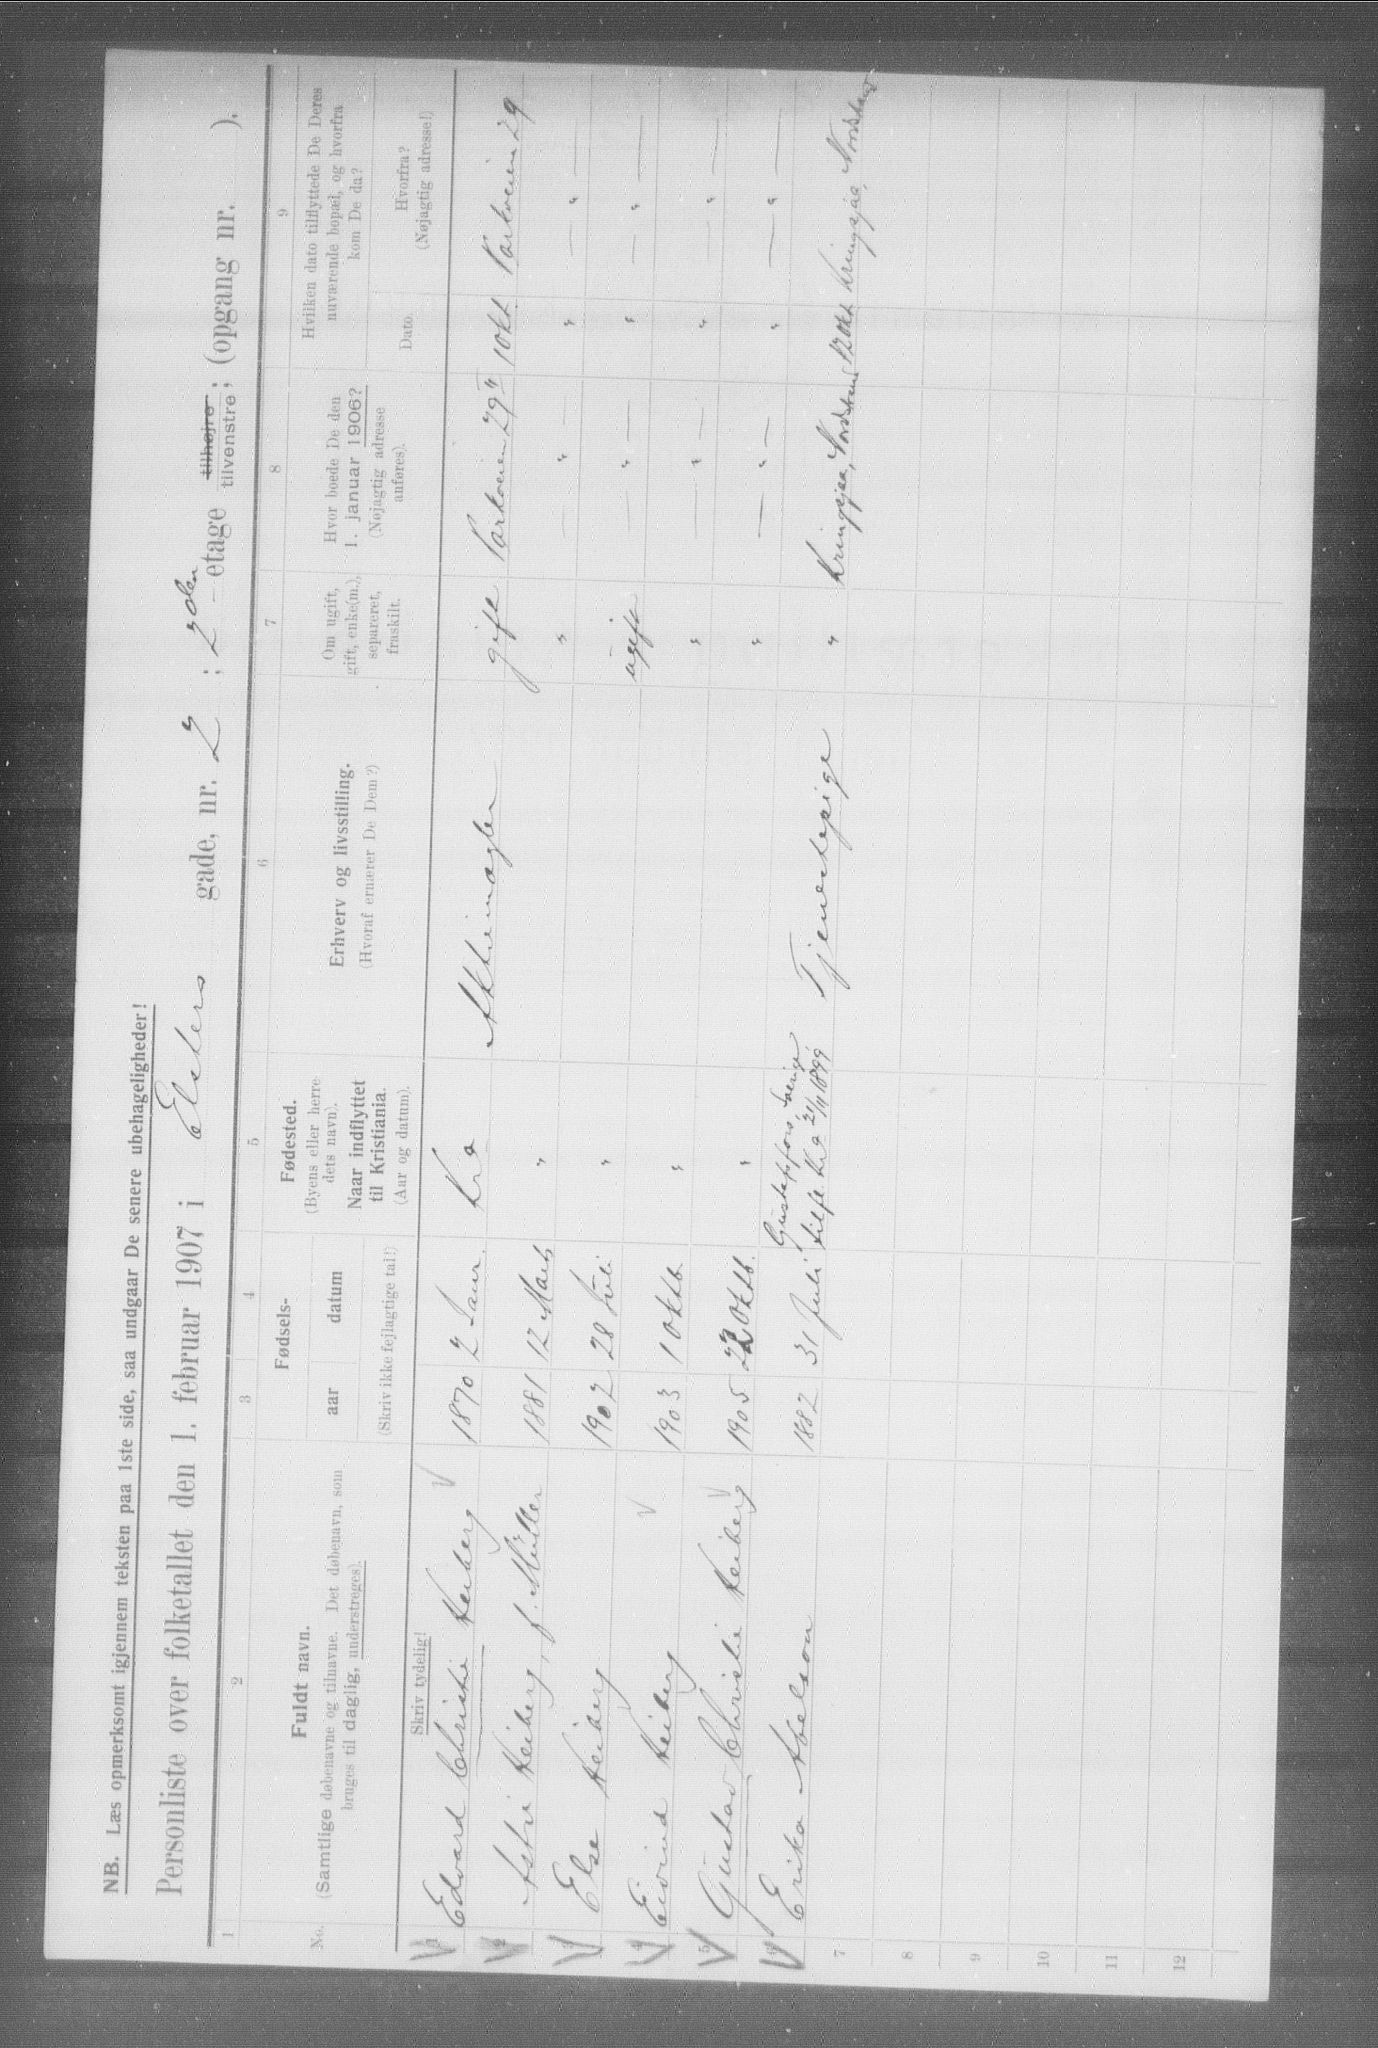 NB. Læs opmerksomt igjennem teksten paa 1ste side, saa undgaar De senere ubehageligheder!
Personliste over folketallet den 1. februar 1907 i Elsters gade, nr. 2 ; 2den etage tilhøjre ; tilvenstre ; (opgang nr. ).
1 2 3 4 5 6 7 8 9
No.
Fuldt navn.
(Samtlige døbenavne og tilnavne. Det døbenavn, som
bruges til daglig, understreges).
Fødsels-
aar datum
(Skriv ikke fejlagtige tal!)
Fødested.
(Byens eller herre
dets navn).
Naar indflyttet
til Kristiania.
(Aar og datum).
Erhverv og livsstilling.
(Hvoraf ernærer De Dem?)
Om ugift,
gift, enke(m.),
separeret,
fraskilt.
Hvor boede De den
1. januar 1906?
(Nøjagtig adresse
anføres).
Hvilken dato tilflyttede De Deres
nuværende bopæl, og hvorfra
kom De da?
Dato.
Hvorfra?
(Nøjagtig adresse!)
Skriv tydelig!
1 Edvard Christie Heiberg 1870 2 Janr. Kra Aktiemægler gift Parkveien 29 1 Okt. Parkveien 29
2 Astri Heiberg, f. Müller 1881 12 Marts " " — " — " — " —
3 Else Heiberg 1902 28 Juli " ugift — " — " — " —
4 Eivind Heiberg 1903 1 Oktb. " " — " — " — " —
5 Gustav Christie Heiberg 1905 22 Oktb. " " — " — " — " —
6 Erika Abelson 1882 31 Juli Gustafsfors Sverige tilfl. Kra 21/11 1899 Tjenestepige " Kringsjaa, Nordstrand 12 Okt Kringsjaa, Nordstrand
7
8
9
10
11
12